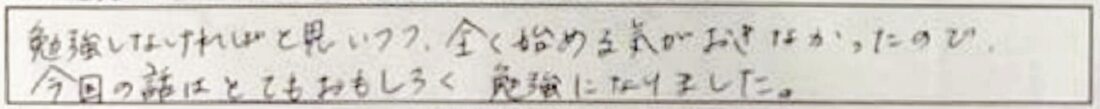 勉強しなければと思いつつ、全く始める気がおきなかったので、
今回の話はとてもおもしろく勉強になりました。